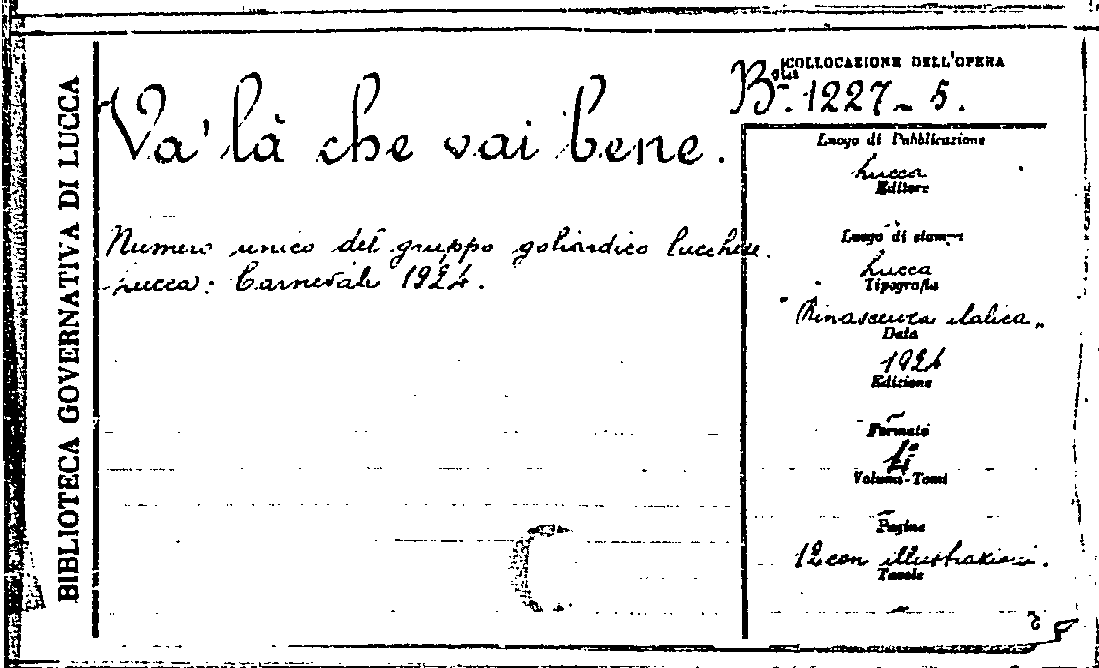 BIBLIOTECA GOVERNATIVA DI LUCCA
COLLOCAZIONE DELL'OPERA
Bsta. 1227 - 5.
Va' là che vai bene.
Numero unico del gruppo goliardico lucchese.
Lucca: Carnevale 1924.
Luogo di Pubblicazione
Lucca
Editore
Luogo di stampa
Lucca
Tipografia
"Rinascenza italica"
Data
1924
Edizione
Formato
4°
Volumi-Tomi
Pagine
12 con illustrazioni.
Tavole